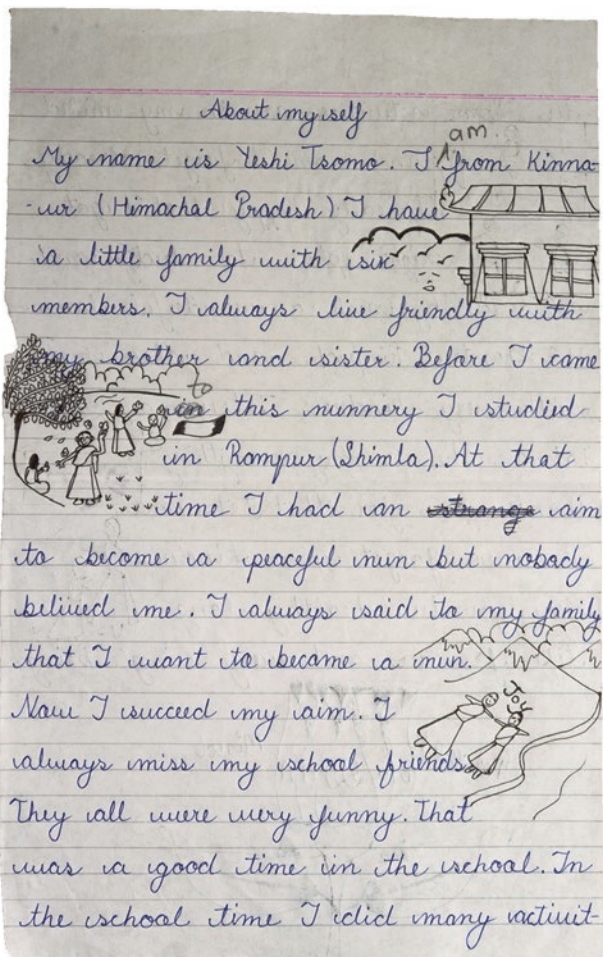 About my self
am.
My name is Yeshi Tsomo. I from Kinna-
-ur (Himachal Pradesh) I have
a little family with six
members. I always live friendly with
my brother and sister. Before I came
to
in this nunnery I studied
in Rompur (Shimla). At that
time I had an strange aim
to become a peaceful nun but nobody
belived me. I always said to my family
that I want to became a nun.
Joy
Now I succeed my aim. I
always miss my school friends
They all were very funny. That
was a good time in the school. In
the school time I did many activit-